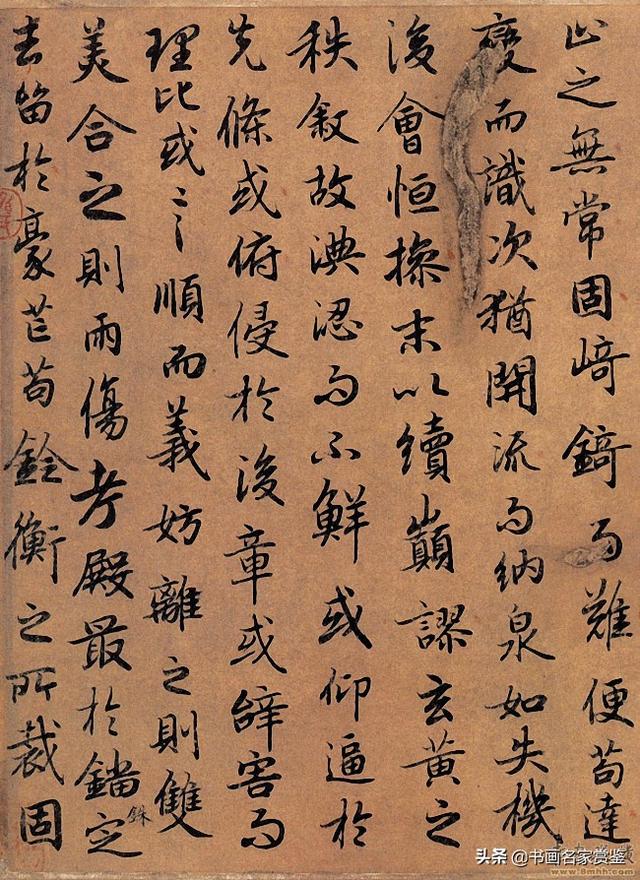 止之無常固崎錡而難便苟達
變而識次猶開流而納泉如失機
後會恒操末以續巔謬玄黃之
秩敘故淟涊而不鮮或仰逼於
先條或俯侵於後章或辭害而
理比或言順而義妨離之則雙
美合之則兩傷考殿最於錙銖定
去留於豪芒苟銓衡之所裁固
头条 @书画名家赏鉴
www.8mhh.com